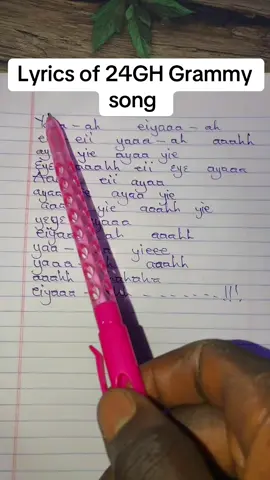 Lyrics of 24GH Grammy
song
eiyaaa-ah
eii yaaa-ah aaahh
ayaa yie ayaa yie
eye aaahh eii eye ayaaa
eii ayaa
ayaa yie
yie aaahh yie
yeye yaaa
eiyaaa ah aaahh
yaa- yieee
yaaa ah aaahh
aaahh
eiyaaa - - - - - - - - - - !!!